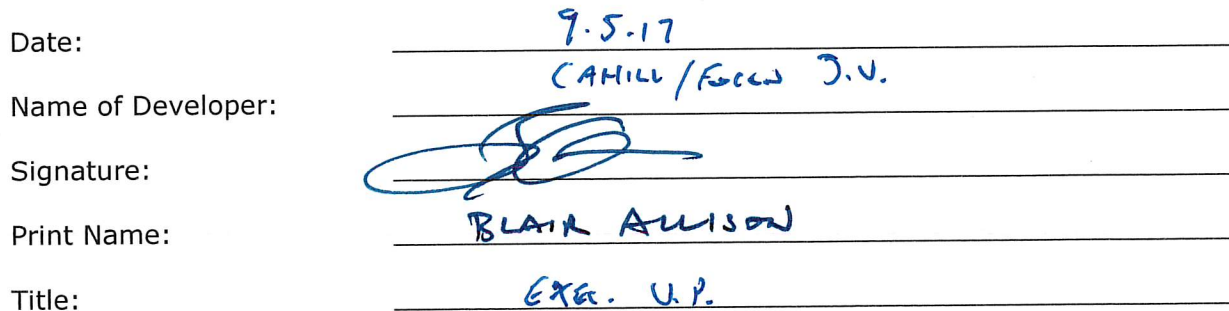 Date: 9.5.17
Name of Developer: CAHILL / J.V.
Signature:
Print Name: BLAIR ALLISON
Title: EXEC. V.P.